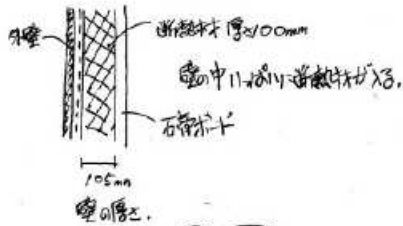 外壁
断熱材 厚さ100mm
壁の中いっぱいに断熱材が入る。
石膏ボード
105mm
壁の厚さ.